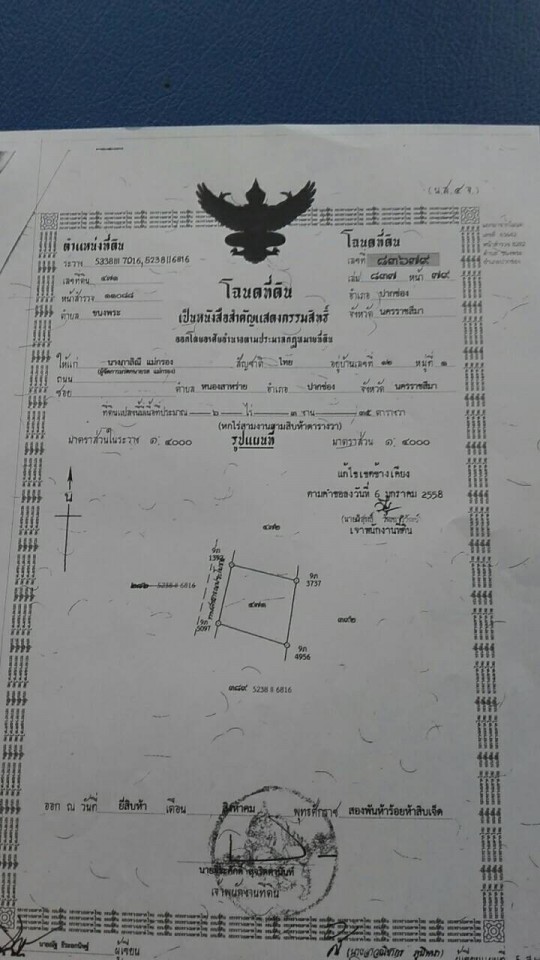 (น.ส.๔ จ.)
ตำแหน่งที่ดิน
ระวาง 5238III7016, 5238II6816
เลขที่ดิน ๔๗๑
หน้าสำรวจ ๑๑๐๘๘
ตำบล ขนงพระ
โฉนดที่ดิน
เลขที่ ๘๓๖๗๙
เล่ม ๘๓๗ หน้า ๗๙
อำเภอ ปากช่อง
จังหวัด นครราชสีมา
โฉนดที่ดิน
เป็นหนังสือสำคัญแสดงกรรมสิทธิ์
ออกโดยอาศัยอำนาจตามประมวลกฎหมายที่ดิน
ให้แก่ สัญชาติ ไทย อยู่บ้านเลขที่ ๑๒ หมู่ที่ ๑
ถนน
ซอย ตำบล หนองสาหร่าย อำเภอ ปากช่อง จังหวัด นครราชสีมา
ที่ดินแปลงนี้มีเนื้อที่ประมาณ ๖ ไร่ ๓ งาน ๓๕ ตารางวา
(หกไร่สามงานสามสิบห้าตารางวา)
มาตราส่วนในระวาง ๑: ๔๐๐๐ รูปแผนที่ มาตราส่วน ๑: ๔๐๐๐
น
แก้ไขเขตข้างเคียง
ตามคำขอลงวันที่ 6 มกราคม 2558
เจ้าพนักงานที่ดิน
๔๗๒
5238 II 6816
๔๗๑
3737
4956
5238 II 6816
ออก ณ วันที่ ยี่สิบห้า เดือน สิงหาคม พุทธศักราช สองพันห้าร้อยห้าสิบเจ็ด
เจ้าพนักงานที่ดิน
ผู้เขียน